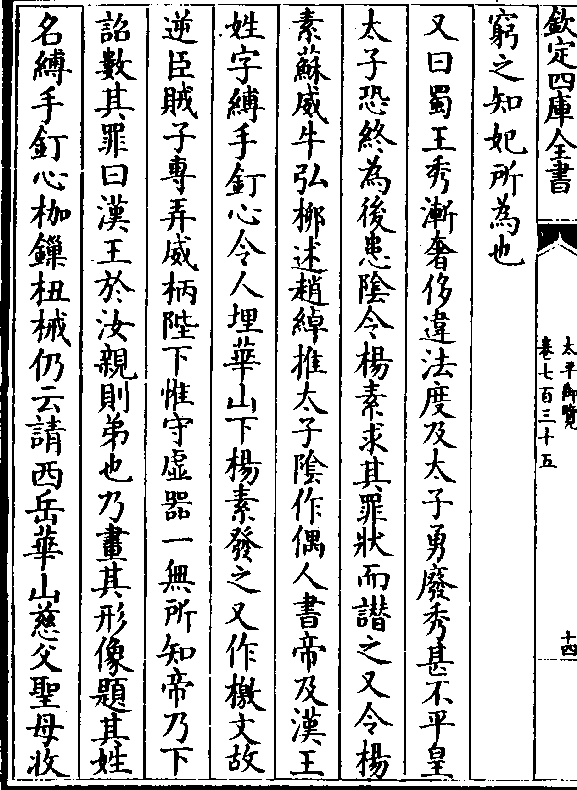 欽定四庫全書
太平御覽
卷七百三十五
十四
窮之知妃所為也
又曰蜀王秀漸奢侈違法度及太子勇廢秀甚不平皇
太子恐終為後患陰令楊素求其罪狀而譖之又令楊
素蘇威牛弘栁述趙綽推太子陰作偶人書帝及漢王
姓字縛手釘心令人埋華山下楊素發之又作檄文故
逆臣賊子專弄威柄陛下惟守虛器一無所知帝乃下
詔數其罪曰漢王於汝親則弟也乃畫其形像題其姓
名縛手釘心枷鏁杻械仍云請西岳華山慈父聖母收